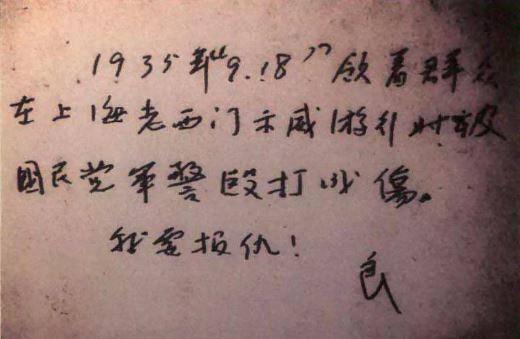 1935年“9.18”领着群众
在上海老西门示威游行时被
国民党军警毆打成傷。
我要报仇!
良